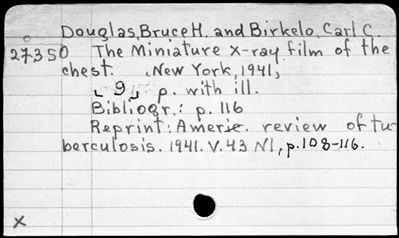 Douglas, Bruce H. and Birkelo, Carl C.
27350 The Miniature X-ray film of the
chest. [New York, 1941]
[9] p. with ill.
Bibliogr.: p. 116
Reprint: Americ. review of tu-
berculosis. 1941. V.43 N1, p.108-116.
x